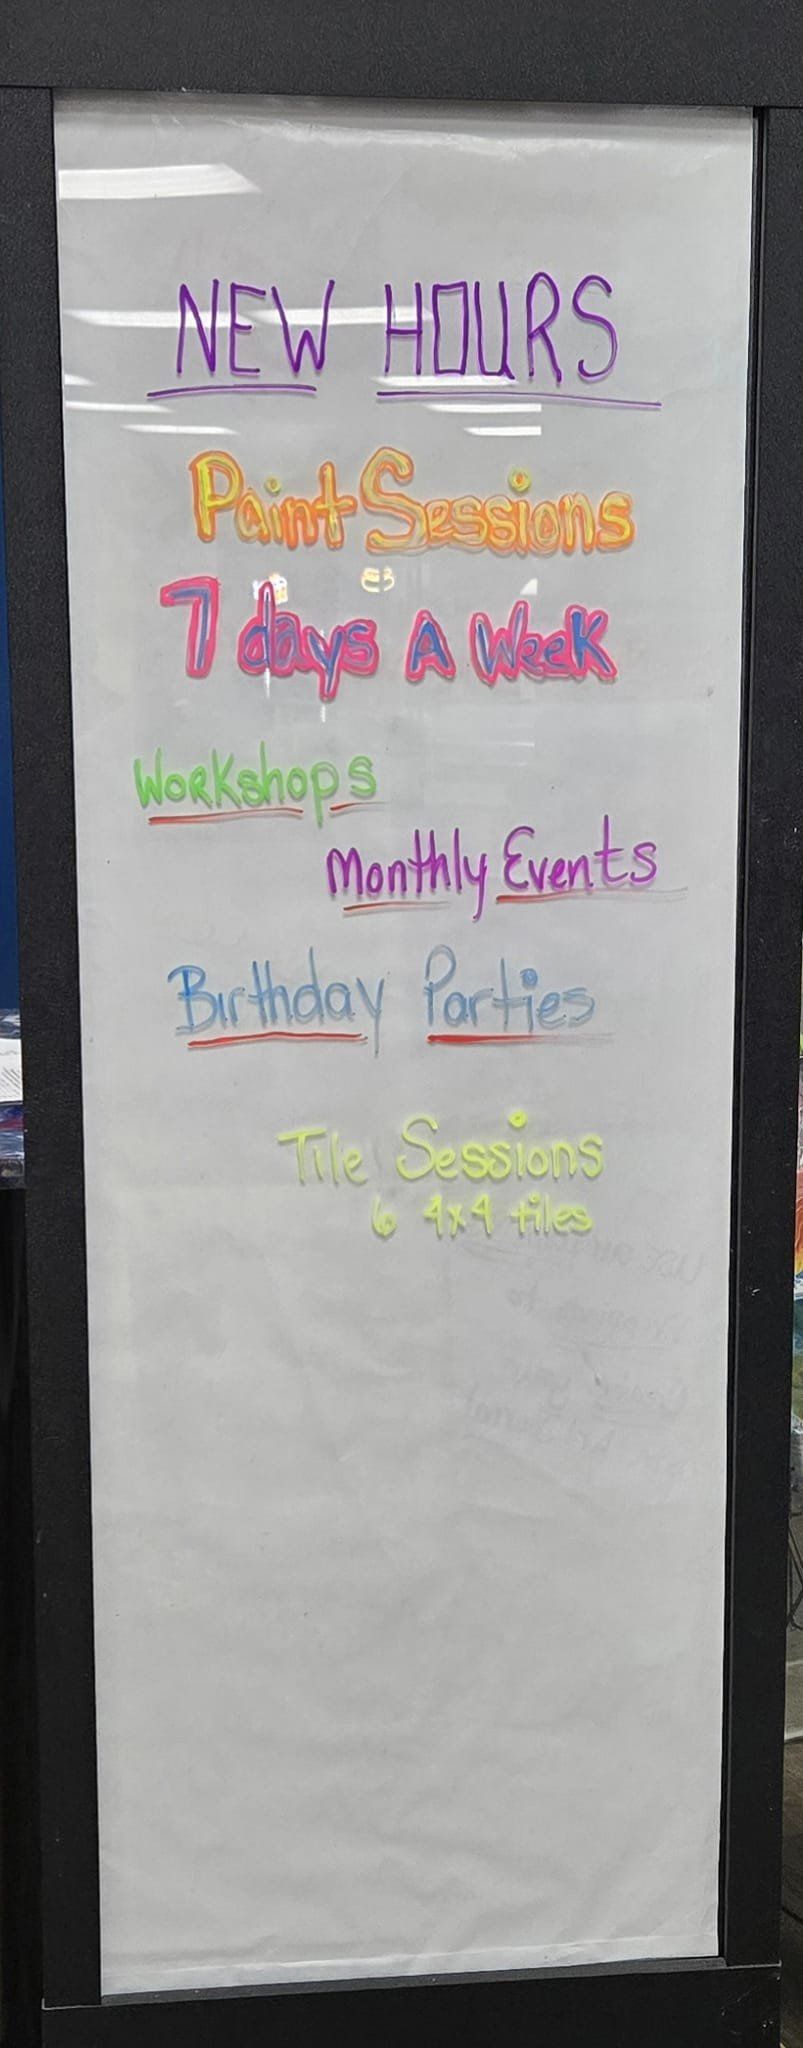 NEW HOURS
Paint Sessions
7 days A Week
Workshops
Monthly Events
Birthday Parties
Tile Sessions
6 4x4 tiles